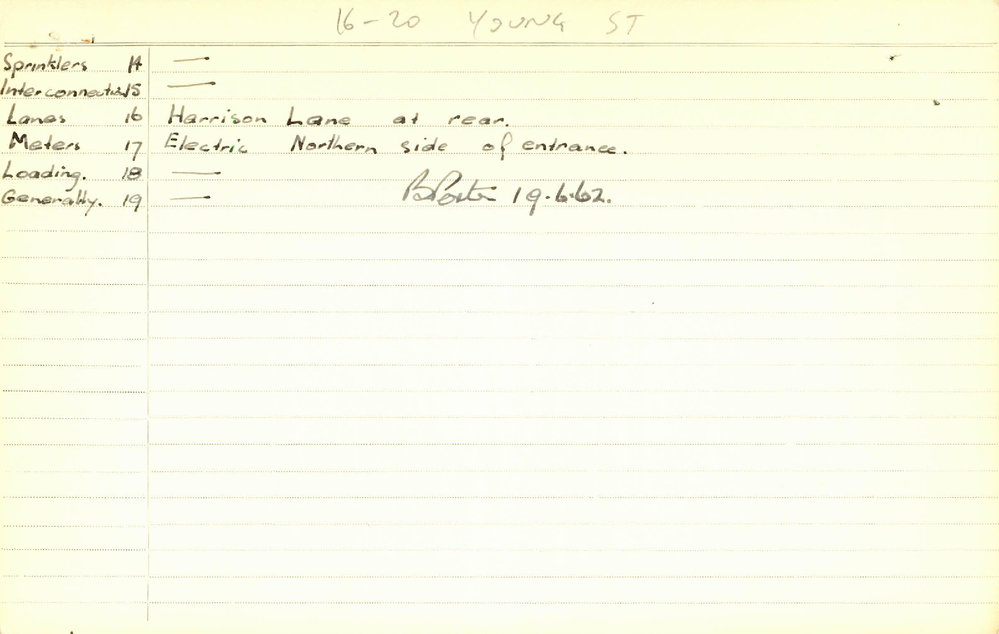 16-20 YOUNG ST
Sprinklers 14 —
Interconnectio 15 —
Lanes 16 Harrison Lane at rear.
Meters 17 Electric Northern side of entrance.
Loading. 18 —
Generally. 19 — 19.6.62.